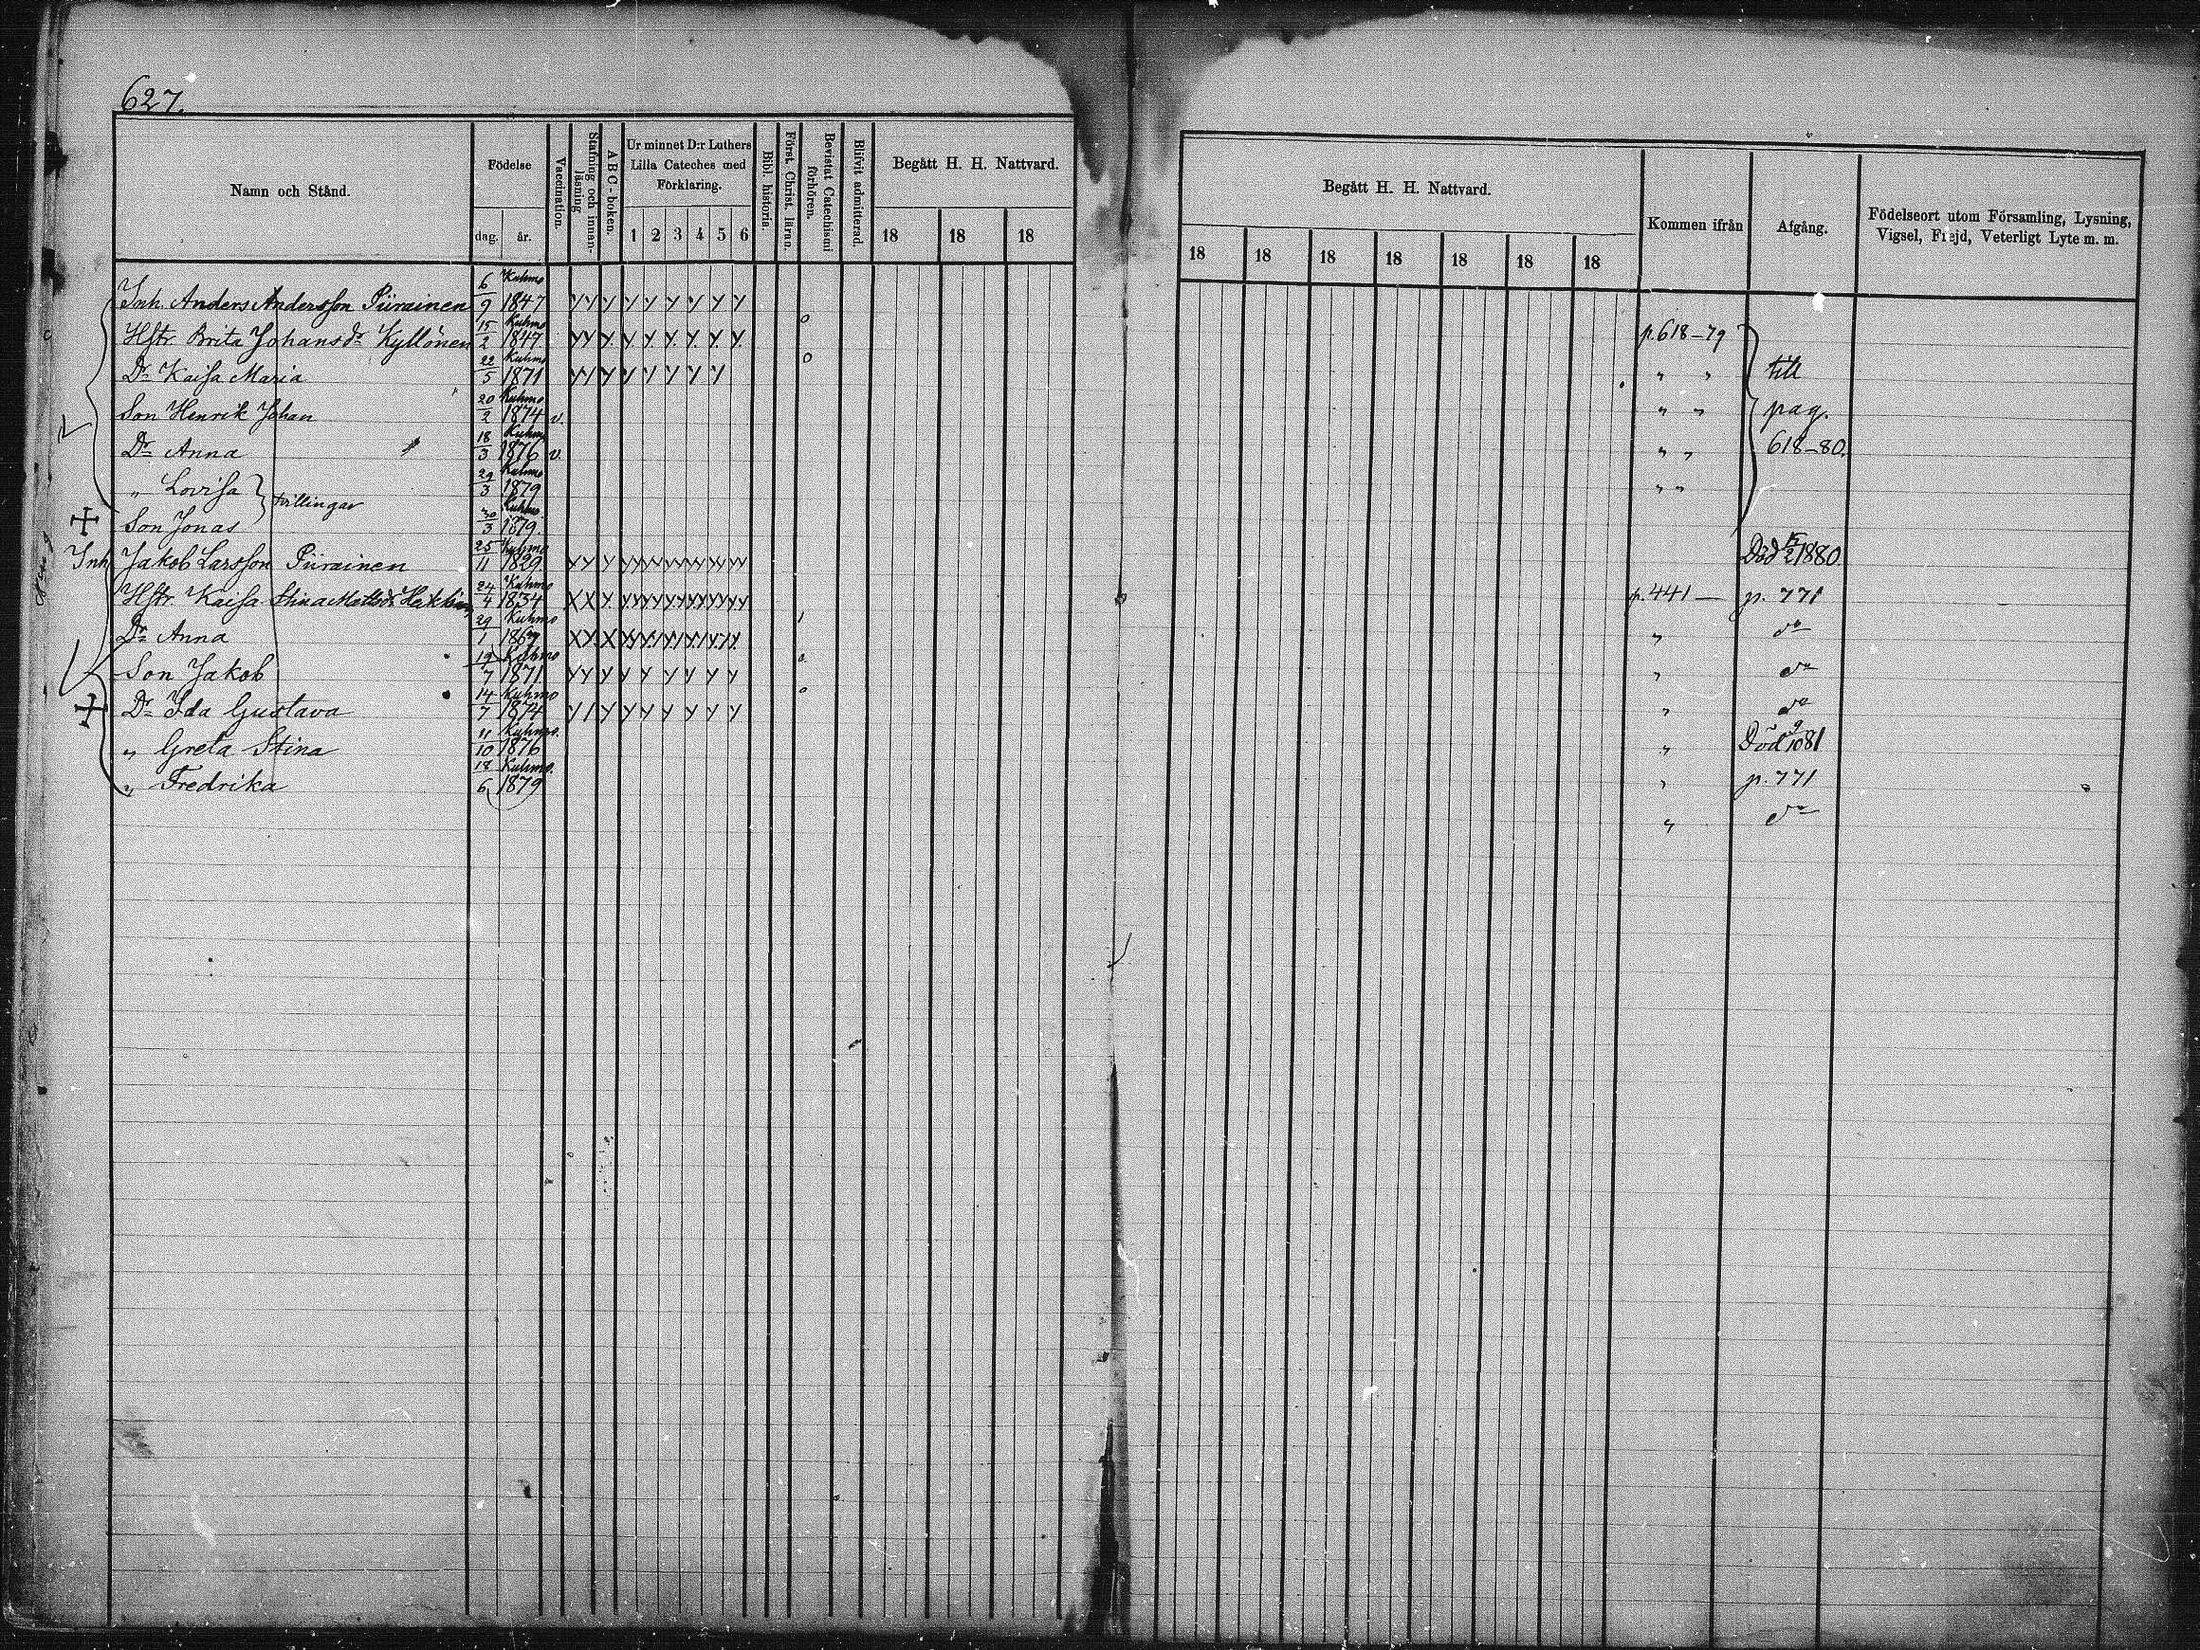 627.
Namn och Stånd.
Födelse
dag.
år.
Vaccination.
Stafning och innan-läsning
A B C - boken.
Ur minnet D:r Luthers
Lilla Cateches med
Förklaring.
1 2 3 4 5 6
Bibl. historia.
Först. Christ. läran.
Bevistat Catechismi förhören.
Blifvit admitterad.
Begått H. H. Nattvard.
18 18 18
Begått H. H. Nattvard.
18 18 18 18 18 18 18
Kommen ifrån
Afgång.
Födelseort utom Församling, Lysning,
Vigsel, Frejd, Veterligt Lyte m. m.
Inh. Anders Andersson Piirainen 6/9 Kuhmo 1847
Hstr. Brita Johansdr Kyllönen 15/2 Kuhmo 1847 p. 618-79
Dr Kaisa Maria 22/5 Kuhmo 1871 " " till
Son Henrik Johan 20/2 Kuhmo 1874 v. " " pag.
Dr Anna 18/3 Kuhmo 1876 v. " " 618-80.
" Lovisa 29/3 Kuhmo 1879 " "
tvillingar
Son Jonas 30/3 Kuhmo 1879. Död 15/2 1880.
Inh Jakob Larsson Piirainen 25/11 Kuhmo 1829 p. 441 — p. 771
Hstr. Kaisa Stina Mattsdr Hakkinen 24/4 Kuhmo 1834 " do
Dr Anna 29/1 Kuhmo 1867 " do
Son Jakob 19/7 Kuhmo 1871 " do
Dr Ida Gustava 14/7 Kuhmo 1874 " Död 9/10 81
" Greta Stina 11/10 Kuhmo. 1876 " p. 771
" Fredrika 18/6 Kuhmo. 1879 " do